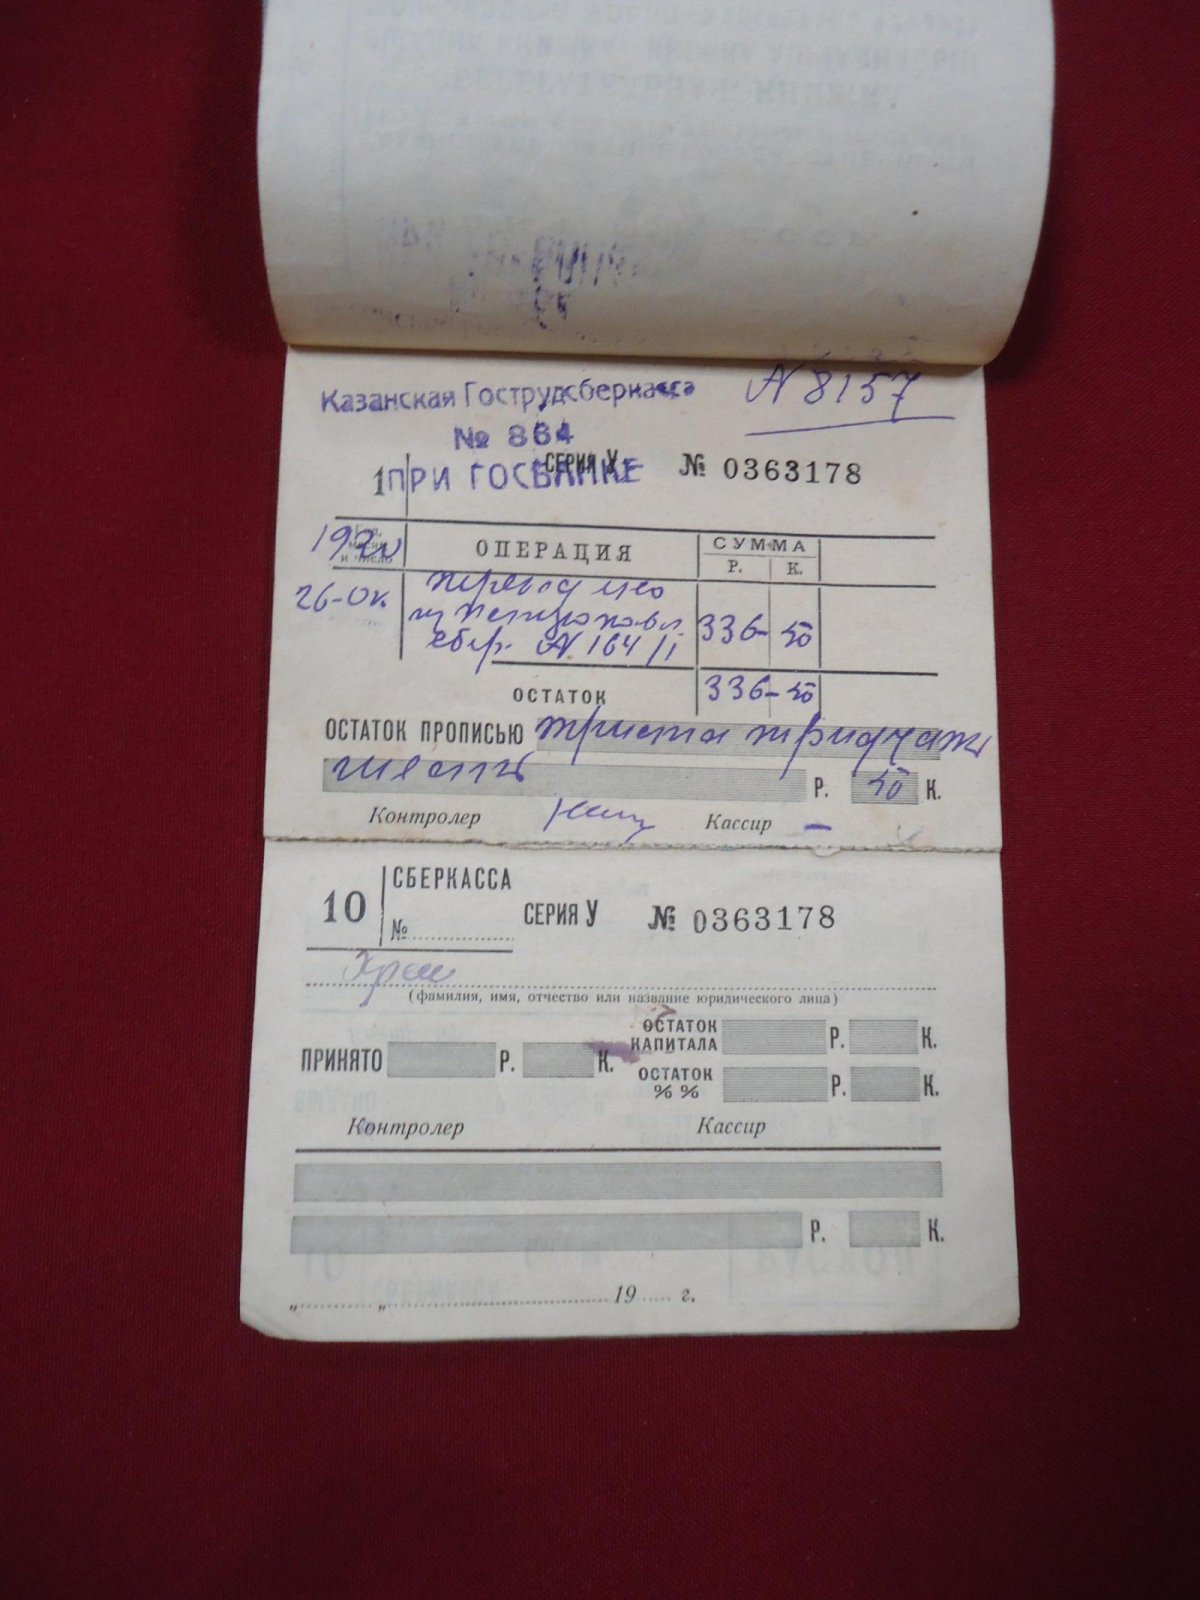 Казанская Гострудсберкасса
N 8157
№ 864
ПРИ ГОСБАНКЕ
1 СЕРИЯ У № 0363178
Год, месяц и число ОПЕРАЦИЯ СУММА
Р. К.
26-Ок. перевод из
сбер. N 164/1 336- 50
ОСТАТОК 336-50
ОСТАТОК ПРОПИСЬЮ триста тридцать
шесть Р. 50 К.
Контролер Кассир
10 СБЕРКАССА
№ СЕРИЯ У № 0363178
(фамилия, имя, отчество или название юридического лица)
ПРИНЯТО Р. К. ОСТАТОК КАПИТАЛА Р. К.
ОСТАТОК %% Р. К.
Контролер Кассир
Р. К.
„ „ 19 г.